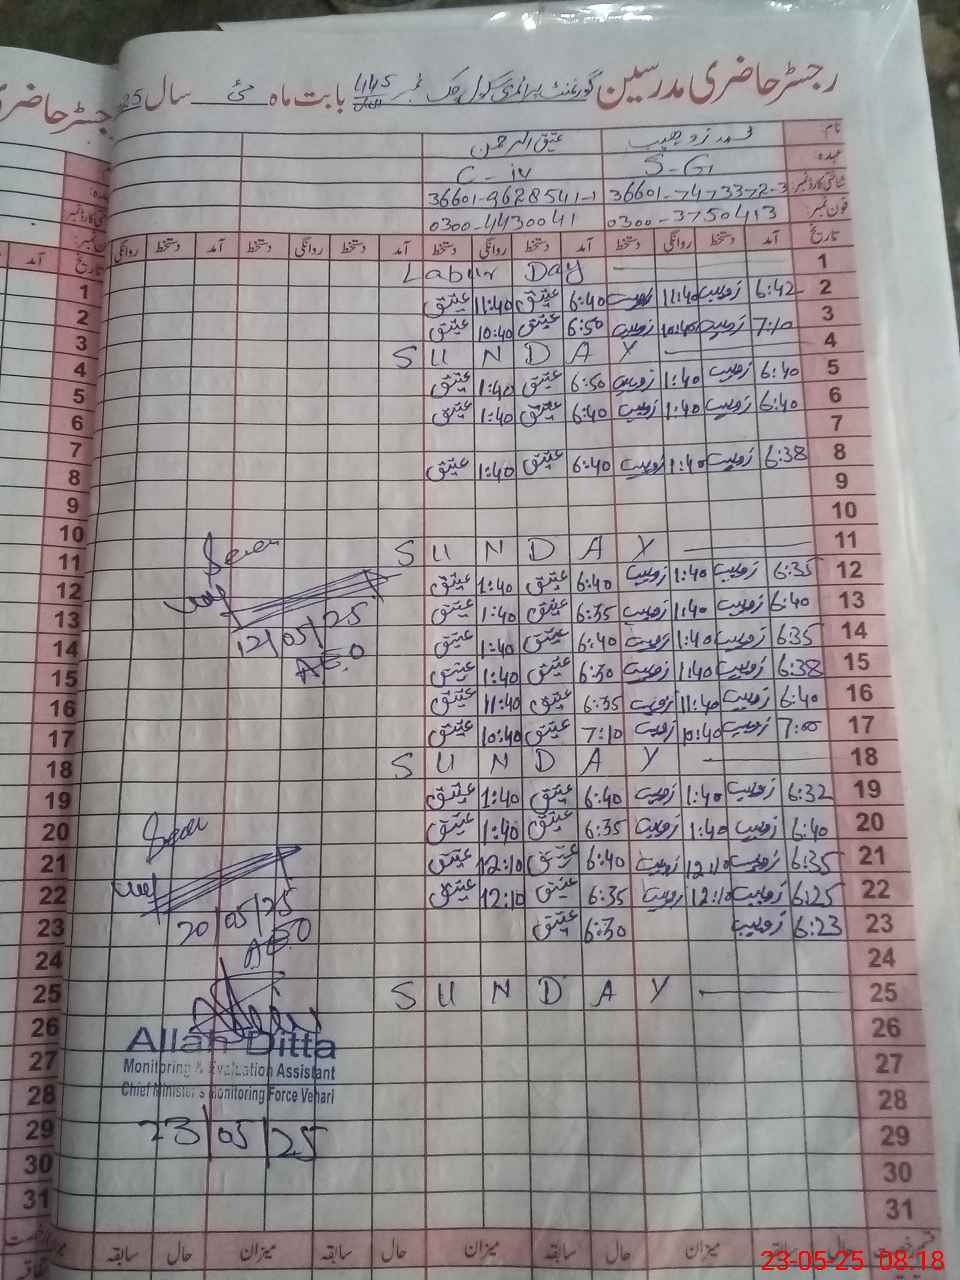 رجسٹر حاضری مدرسین گورنمنٹ پرائمری سکول چک نمبر 445 بابت ماہ مئی سال 25
نام: محمد زوہیب عتیق الرحمن
عہدہ S-G C-iv
شناختی کارڈ نمبر 36601-7473372-3 36601-9628541-1
فون نمبر: 0300-3750413 0300-4430041
تاریخ آمد دستخط روانگی دستخط آمد دستخط روانگی دستخط آمد دستخط روانگی دستخط آمد دستخط روانگی
1 Labur Day
2 6:42 زوہیب 11:40 زوہیب 6:40 عتیق 11:40 عتیق
3 7:10 زوہیب 10:40 زوہیب 6:50 عتیق 10:40 عتیق
4 SUNDAY
5 6:40 زوہیب 1:40 زوہیب 6:50 عتیق 1:40 عتیق
6 6:40 زوہیب 1:40 زوہیب 6:40 عتیق 1:40 عتیق
7
8 6:38 زوہیب 1:40 زوہیب 6:40 عتیق 1:40 عتیق
9
10
11 SUNDAY
12 6:35 زوہیب 1:40 زوہیب 6:40 عتیق 1:40 عتیق
13 6:40 زوہیب 1:40 زوہیب 6:35 عتیق 1:40 عتیق
12/05/25
14 6:35 زوہیب 1:40 زوہیب 6:40 عتیق 1:40 عتیق
AEO
15 6:38 زوہیب 1:40 زوہیب 6:30 عتیق 1:40 عتیق
16 6:40 زوہیب 11:40 زوہیب 6:35 عتیق 11:40 عتیق
17 7:00 زوہیب 10:40 زوہیب 7:10 عتیق 10:40 عتیق
18 SUNDAY
19 6:32 زوہیب 1:40 زوہیب 6:40 عتیق 1:40 عتیق
20 6:40 زوہیب 1:40 زوہیب 6:35 عتیق 1:40 عتیق
21 6:35 زوہیب 12:10 زوہیب 6:40 عتیق 12:10 عتیق
22 6:25 زوہیب 12:10 زوہیب 6:35 عتیق 12:10 عتیق
23 6:23 زوہیب 6:30 عتیق
20/05/25
AEO
24
25 SUNDAY
26
Allah Ditta
27
Monitoring & Evaluation Assistant
28
Chief Minister's Monitoring Force Vehari
29
23/05/25
30
31
میزان حال سابقہ میزان حال سابقہ میزان حال سابقہ
23-05-25 08:18